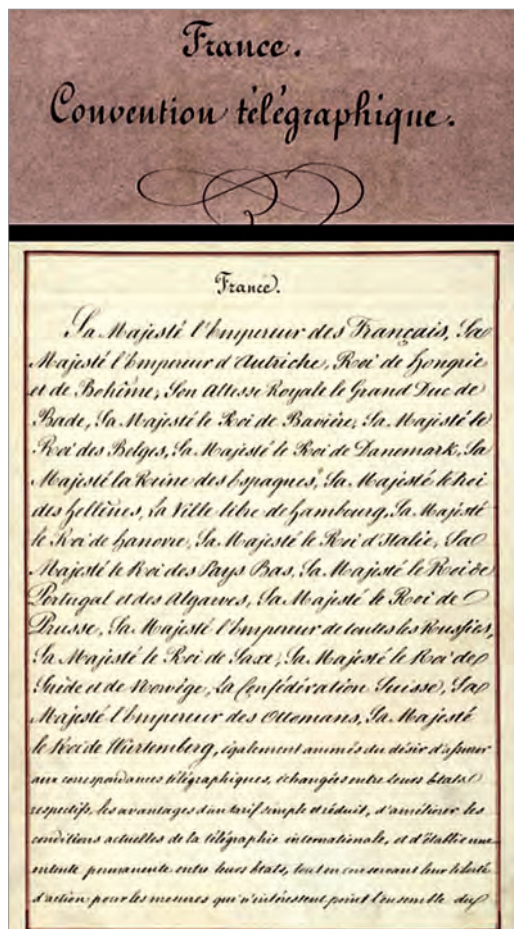 France.
Convention télégraphique.
France.
Sa Majesté l'Empereur des Français, Sa
Majesté l'Empereur d'Autriche, Roi de Hongrie
et de Bohême, Son Altesse Royale le Grand Duc de
Bade, Sa Majesté le Roi de Bavière, Sa Majesté le
Roi des Belges, Sa Majesté le Roi de Danemark, Sa
Majesté la Reine des Espagnes, Sa Majesté le Roi
des Hellènes, La Ville libre de Hambourg, Sa Majesté
le Roi de Hanovre, Sa Majesté le Roi d'Italie, Sa
Majesté le Roi des Pays Bas, Sa Majesté le Roi de
Portugal et des Algarves, Sa Majesté le Roi de
Prusse, Sa Majesté l'Empereur de toutes les Russies,
Sa Majesté le Roi de Saxe, Sa Majesté le Roi de
Suède et de Norwège, La Confédération Suisse, Sa
Majesté l'Empereur des Ottomans, Sa Majesté
le Roi de Würtemberg, également animés du désir d'assurer
aux correspondances télégraphiques, échangées entre leurs Etats
respectifs, les avantages d'un tarif simple et réduit, d'améliorer les
conditions actuelles de la télégraphie internationale, et d'établir une
entente permanente entre leurs Etats, tout en conservant leur liberté
d'action pour les mesures qui n'intéressent point l'ensemble du